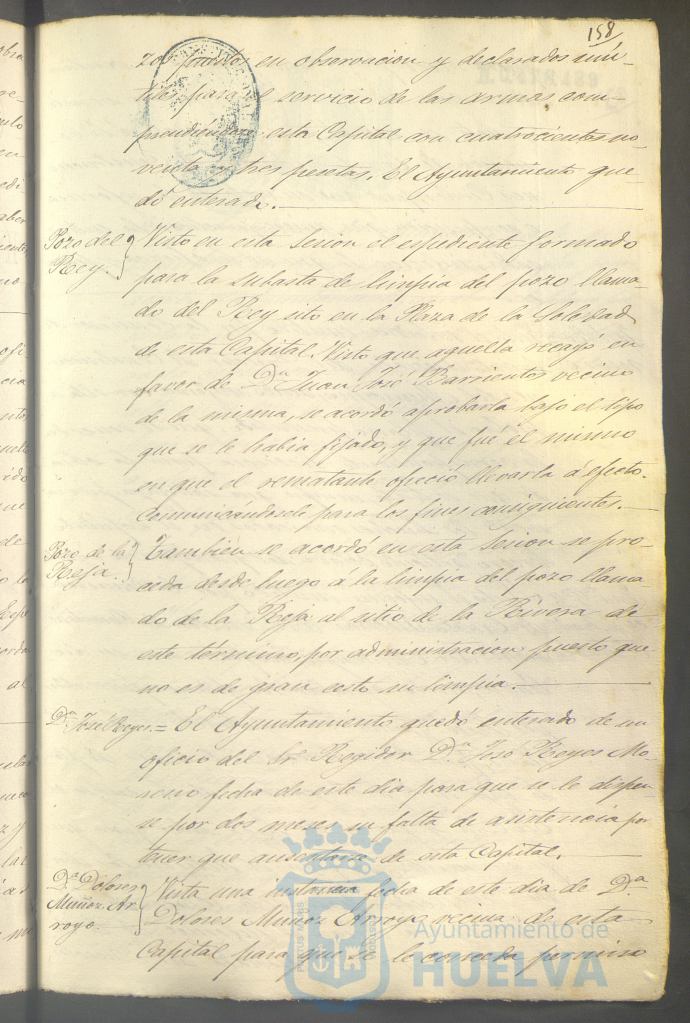 158
zos puestos en observacion y declarados inú-
tiles para el servicio de las armas com-
prendiéndose esta Capital con cuatrocientos no-
venta y tres pesetas. El Ayuntamiento que-
dó enterado.
Pozo del
Rey.
Visto en esta sesion el espediente formado
para la subasta de limpia del pozo llama-
do del Rey sito en la Plaza de la Soledad
de esta Capital. Visto que aquella recayó en
favor de Dn. Juan José Barrientos vecino
de la misma, se acordó aprobarla bajo el tipo
que se le habia fijado, y que fué el mismo
en que el rematante ofreció llevarla á efecto.
Comunicándosele para los fines consiguientes.
Pozo de la
Reja.
Tambien se acordó en esta sesion se pro-
ceda desde luego á la limpia del pozo llama-
do de la Reja al sitio de la Rivera de
este término, por administracion puesto que
no es de gran costo su limpia.
Dn. José Reyes =
El Ayuntamiento quedó enterado de un
oficio del Sr. Regidor Dn. José Reyes Mo-
reno fecha de este dia para que se le dispen-
se por dos meses su falta de asistencia por
tener que ausentarse de esta Capital.
Da. Dolores
Muñoz Ar
royo.
Vista una instancia fecha de este dia de Da.
Dolores Muñoz Arroyo vecina de esta
Capital para que se le conceda permiso
Ayuntamiento de
HUELVA